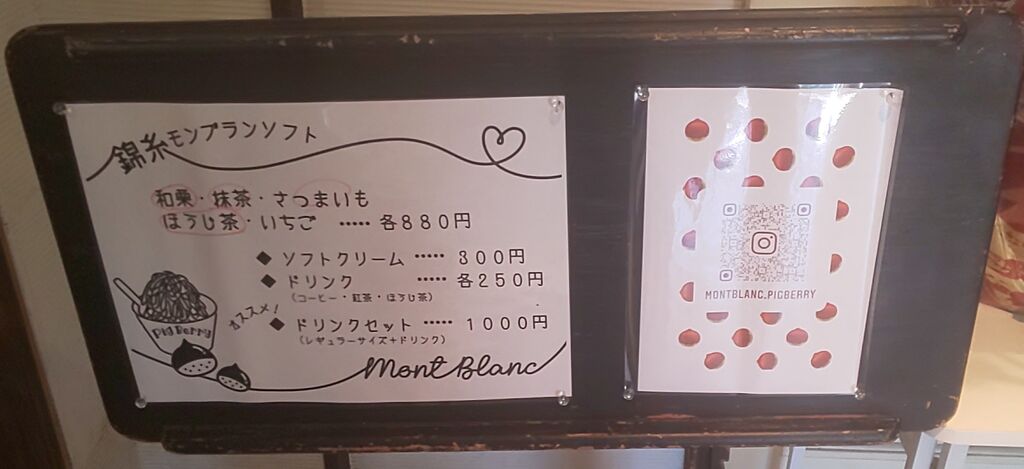 錦糸モンブランソフト
和栗・抹茶・さつまいも
ほうじ茶・いちご ····· 各880円
◆ ソフトクリーム ····· 300円
◆ ドリンク ····· 各250円
(コーヒー・紅茶・ほうじ茶)
オススメ!
◆ ドリンクセット ····· 1000円
(レギュラーサイズ+ドリンク)
Pig Berry
Mont Blanc
MONTBLANC.PIGBERRY